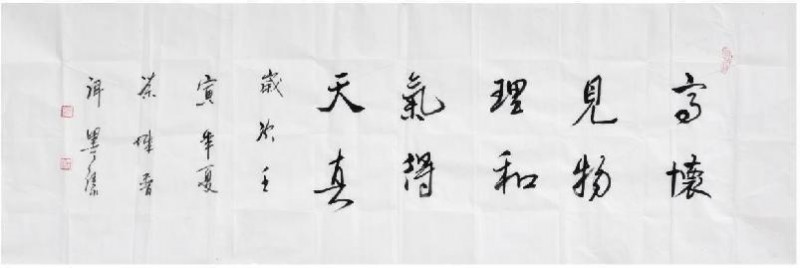 高懷
見物
理和
氣得
天真
歲次壬
寅年夏
墨